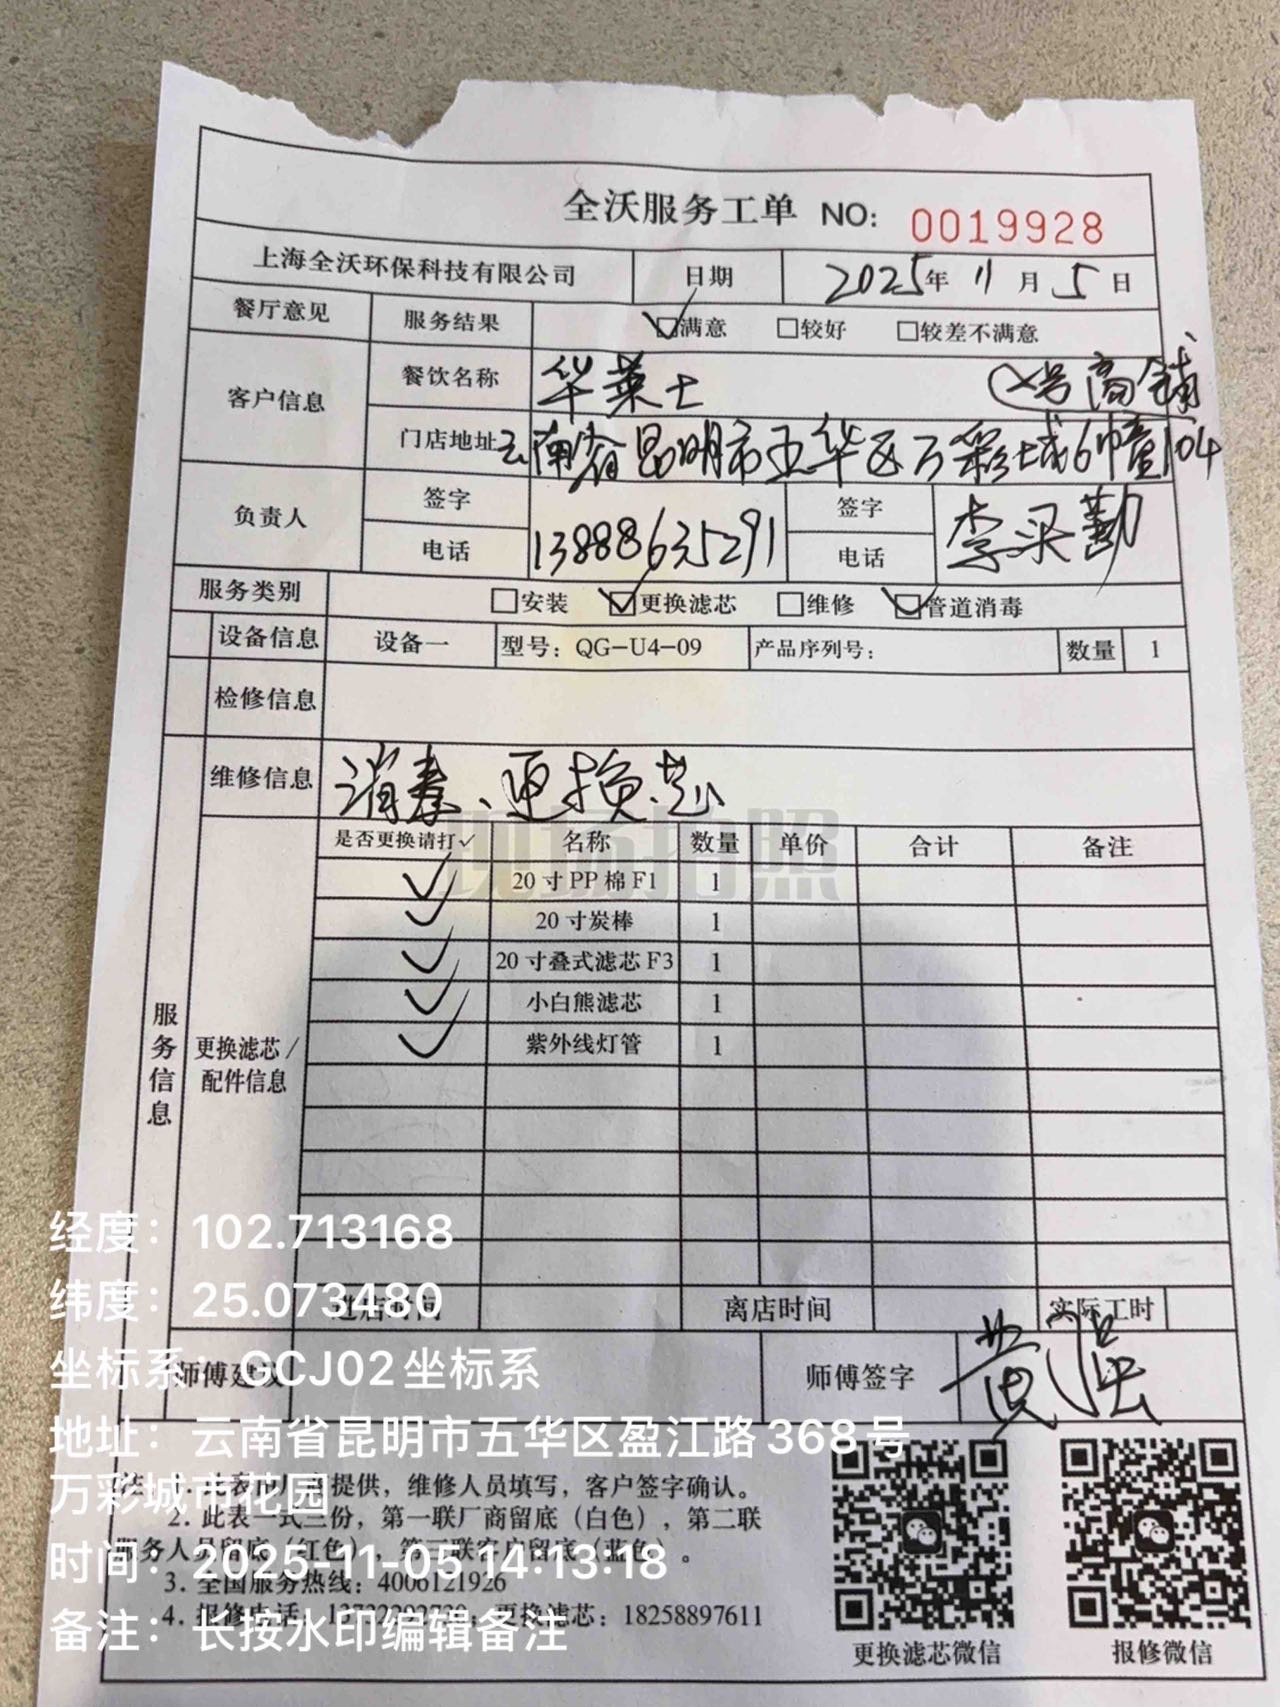 全沃服务工单 NO: 0019928
上海全沃环保科技有限公司 日期 2025年 11月 5日
餐厅意见 服务结果 ☑满意 □较好 □较差不满意
客户信息 餐饮名称 华莱士 号商铺
门店地址 云南省昆明市五华区万彩城6幢104
负责人 签字 签字
电话 13888635291 电话 李采勤
服务类别 □安装 ☑更换滤芯 □维修 ☑管道消毒
设备信息 设备一 型号：QG-U4-09 产品序列号： 数量 1
检修信息
维修信息 消毒、更换芯
现场拍照
服务信息
更换滤芯/配件信息
是否更换请打✓ 名称 数量 单价 合计 备注
✓ 20寸PP棉F1 1
✓ 20寸炭棒 1
✓ 20寸叠式滤芯F3 1
✓ 小白熊滤芯 1
✓ 紫外线灯管 1
进店时间 离店时间 实际工时
师傅建议 师傅签字
提供，维修人员填写，客户签字确认。
2. 此表一式三份，第一联厂商留底（白色），第二联
服务人员留底（红色），第三联客户留底（蓝色）。
3. 全国服务热线：4006121926
4. 报修电话： 更换滤芯：18258897611
更换滤芯微信 报修微信
经度：102.713168
纬度：25.073480
坐标系：GCJ02坐标系
地址：云南省昆明市五华区盈江路368号
万彩城市花园
时间：2025-11-05 14:13:18
备注：长按水印编辑备注